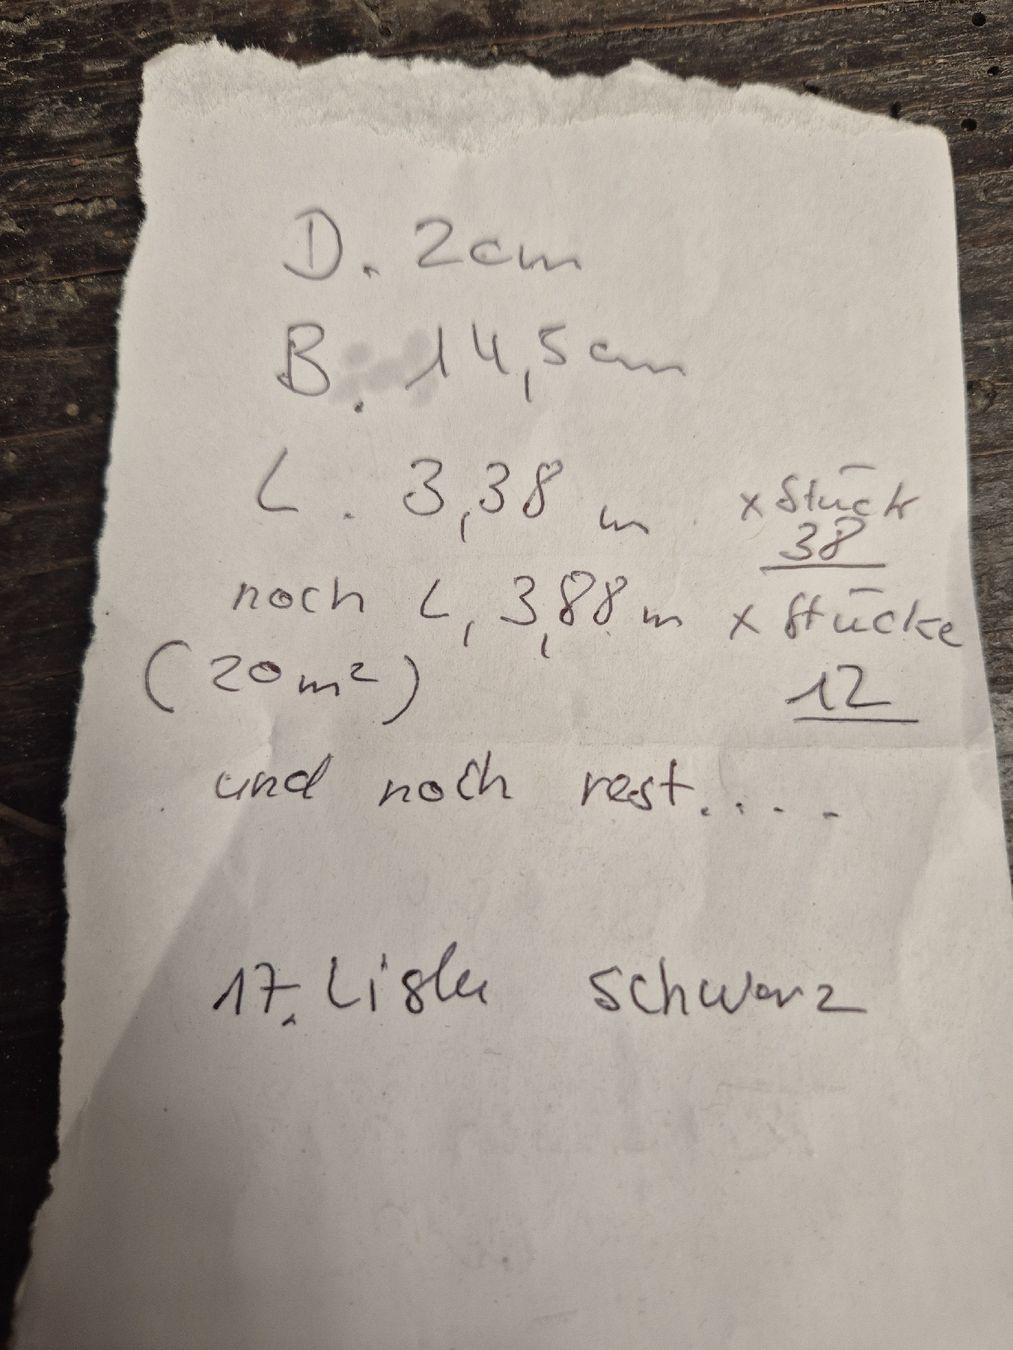 D. 2cm
B. 14,5cm
L. 3,38 m x Stück
38
noch L, 3,88m x Stücke
(20m²) 12
und noch rest....
17. schwarz